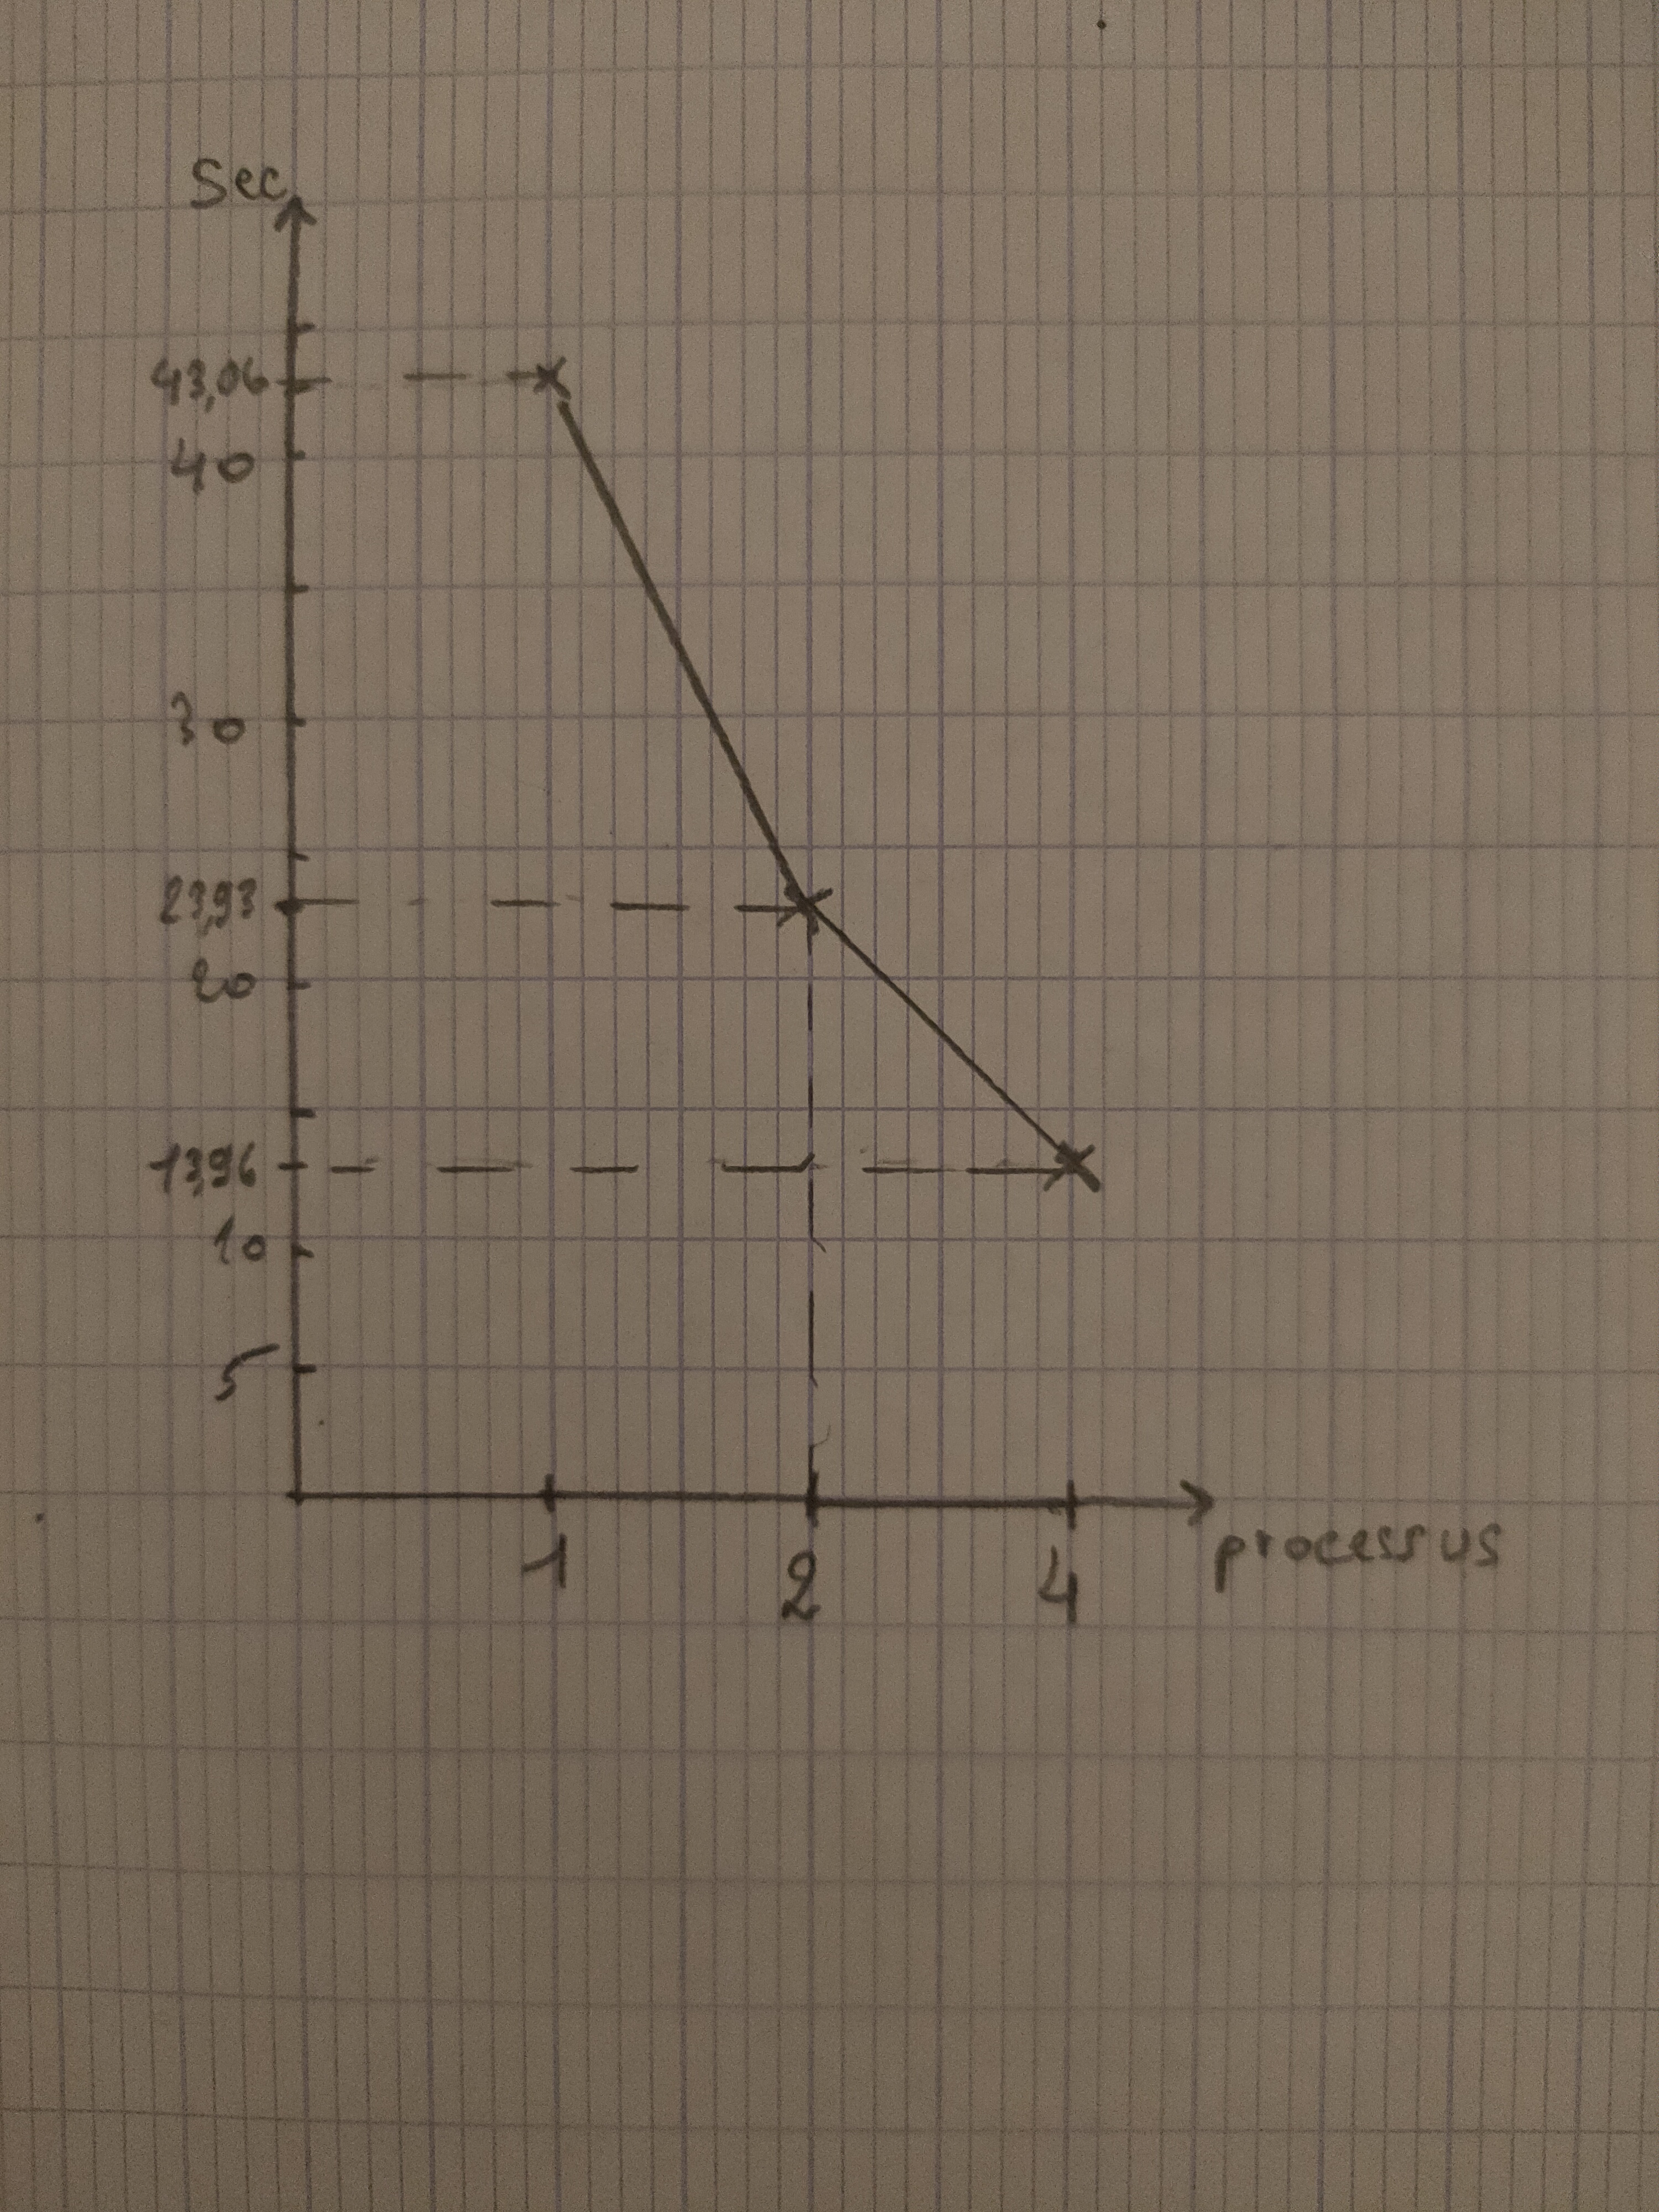 Sec
43,06
40
30
23,93
20
13,96
10
5
1 2 4
processus